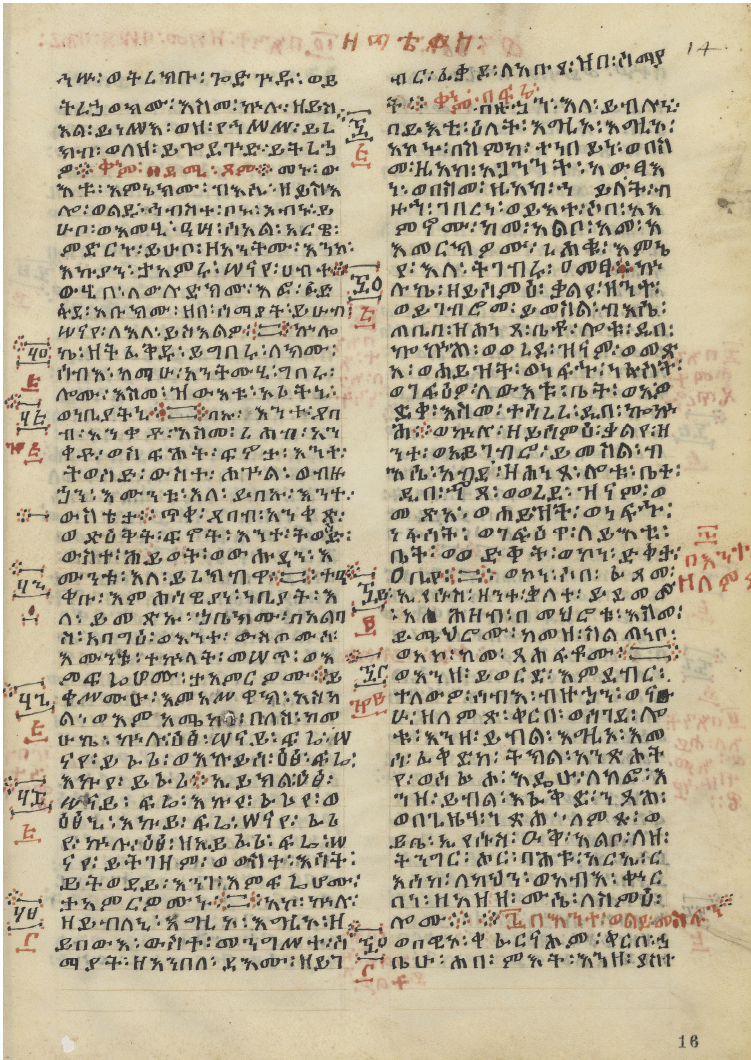 ዘማቴዎስ፡
14
ኅሡ፡ ወትረክቡ፡ ጐድጕዱ፡ ወይ
ትረኃወክሙ፡ እስመ፡ ኵሉ፡ ዘይስ
እል፡ ይነሥእ፡ ወዘ፡ የኀሥሥ፡ ይረ
ክብ፡ ወለዘ፡ ይጐደጕድ፡ ይትረኃ
ዎ። ጾም። መኑ፡ ው
እቱ፡ እምኔክሙ፡ ብእሲ፡ ዘይስእ
ሎ፡ ወልዱ፡ ኅብስተ፡ ቦኑ፡ እብነ፡ ይ
ሁቦ፡ ወእመሂ፡ ዓሣ፡ ሰአል፡ አርዌ፡
ምድርኑ፡ ይሁቦ፡ ዘአንትሙ፡ እንከ፡
እኩያን፡ ታአምሩ፡ ሠናየ፡ ሀብተ።
ውሂበ፡ ለውሉድክሙ፡ እፎ፡ ፈድ
ፋደ፡ አቡክሙ፡ ዘበ፡ ሰማያት፡ ይሁብ
ሠናየ፡ ለእለ፡ ይስእልዎ፡ ኵሎ
ኬ፡ ዘትፈቅዱ፡ ይግበሩ፡ ለክሙ፡
ሰብእ፡ ከማሁ፡ አንትሙሂ፡ ግበሩ፡
ሎሙ፡ እስመ፡ ዝውእቱ፡ ኦሪትኒ፡
ወነቢያትኒ። ባኡ፡ እንተ፡ ጸባ
ብ፡ አንቀጽ፡ እስመ፡ ረሒብ፡ አን
ቀጽ፡ ወሰፋሕት፡ ፍኖት፡ እንተ፡
ትወስድ፡ ውስተ፡ ሐጕል፡ ወብዙ
ኃን፡ እሙንቱ፡ እለ፡ ይበውኡ፡ እንተ፡
ውስቴታ። ጥቀ፡ ጸባብ፡ አንቀጽ፡
ወጽዕቅት፡ ፍኖት፡ እንተ፡ ትወስድ፡
ውስተ፡ ሕይወት፡ ወውሑዳን፡ እ
ሙንቱ፡ እለ፡ ይረክብዋ። ተዐ
ቀቡ፡ እምሐሳዊያን፡ ነቢያት፡ እ
ለ፡ ይመጽኡ፡ ኃቤክሙ፡ በአልባ
ሰ፡ አባግዕ፡ ወእንተ፡ ውስጦሙሰ፡
እሙንቱ፡ ተኵላት፡ መሠጥ፡ ወእ
ምፍሬሆሙ፡ ታአምርዎሙ። ይ
ቀሥሙኑ፡ እምአሥዋክ፡ አስካ
ል፡ ወእምአሜከላ፡ በለሰ፡ ከመ
ሁኬ፡ ኵሉ፡ ዕፅ፡ ሠናይ፡ ፍሬ፡ ሠ
ናየ፡ ይፈሪ፡ ወእኩይሰ፡ ዕፅ፡ ፍሬ፡
እኩየ፡ ይፈሪ። ኢይክል፡ ዕፅ፡
ሠናይ፡ ፍሬ፡ እኩየ፡ ፈሪየ፡ ወ
ዕፅኒ፡ እኩይ፡ ፍሬ፡ ሠናየ፡ ፈሪ
የ፡ ኵሉ፡ ዕፅ፡ ዘኢይፈሪ፡ ፍሬ፡ ሠ
ናየ፡ ይትገዘም፡ ወውስተ፡ እሳት፡
ይትወደይ፡ እንከ፡ እምፍሬሆሙ፡
ታአምርዎሙ። አኮ፡ ኵሉ፡
ዘይብለኒ፡ እግዚኦ፡ እግዚኦ፡ ዘ
ይበውእ፡ ውስተ፡ መንግሥተ፡ ሰ
ማያት፡ ዘእንበለ፡ ዳእሙ፡ ዘይገ
ብር፡ ፈቃደ፡ ለአቡየ፡ ዝበ፡ ሰማያ
ት። ብዙኃን፡ እለ፡ ይብሉኒ፡
በይእቲ፡ ዕለት፡ እግዚኦ፡ እግዚኦ፡
አኮኑ፡ በስምከ፡ ተነበይነ፡ ወበስ
መ፡ ዚአከ፡ አጋንንት፡ አውፃእ
ነ፡ ወበስመ፡ ዚአከ፡ ኃይላት፡ ብ
ዙኃ፡ ገበርነ፡ ወይእተ፡ ሶበ፡ አአ
ምኖሙ፡ ከመ፡ አልቦ፡ አመ፡ አ
አመርክዎሙ፡ ረሐቁ፡ እምኔ
የ፡ እለ፡ ትገብሩ፡ ዐመፃ። ኵ
ሉኬ፡ ዘይሰምዕ፡ ቃልየ፡ ዘንተ፡
ወይገብሮ፡ ይመስል፡ ብእሴ፡
ጠቢበ፡ ዘሐነጸ፡ ቤቶ፡ ሎቱ፡ ዲበ፡
ኰኵሕ፡ ወወረደ፡ ዝናም፡ ወመጽ
አ፡ ወሐይዝት፡ ወነፍኀ፡ ነፋሳት፡
ወገፍዕዎ፡ ለውእቱ፡ ቤት፡ ወኢወ
ድቀ፡ እስመ፡ ተሳረረ፡ ዲበ፡ ኰኵ
ሕ። ወኵሉ፡ ዘይሰምዕ፡ ቃልየ፡ ዘ
ንተ፡ ወኢይገብሮ፡ ይመስል፡ ብ
እሴ፡ አብደ፡ ዘሐነጸ፡ ሎቱ፡ ቤተ፡
ዲበ፡ ኆጻ፡ ወወረደ፡ ዝናም፡ ወ
መጽአ፡ ወሐይዝት፡ ወነፍኀ፡
ነፋሳት፡ ወገፍዕዎ፡ ለይእቲ፡
ቤት፡ ወወድቀት፡ ወኮነ፡ ድቀታ፡
ዐቢየ። ወኮነ፡ ሶበ፡ ፈጸመ፡
ኢየሱስ፡ ዘንተ፡ ቃለተ፡
ሕዝብ፡ በምህሮቱ፡ እስመ፡
ይሜህሮሙ፡ ከመዘ፡ ስልጣኑ፡
ወአኮ፡ ከመ፡ ጸሐፍቶሙ።
ወእንዘ፡ ይወርድ፡ እምደብር፡
ተለውዎ፡ ሰብእ፡ ብዙኃን፡ ወናሁ፡ ዘለምጽ፡ ቀርበ፡ ወሰገደ፡ ሎ
ቱ፡ እንዘ፡ ይብል፡ እግዚኦ፡ እመ
ሰ፡ ፈቀድከ፡ ትክል፡ አንጽሖት
የ፡ ወሰፍሐ፡ እዴሁ፡ ለከፎ፡ እ
ንዘ፡ ይብል፡ እፈቅድ፡ ንጻሕ፡
ወበጊዜሃ፡ ነጽሐ፡ ለምጹ፡ ወ
ይቤ፡ ኢየሱስ፡ ዑቅ፡ አልቦ፡ ለዘ፡
ትነግር፡ ሑር፡ ባሕቱ፡ አርኢ፡ ር
እሰከ፡ ለካህን፡ ወአብእ፡ ቍርባ
ነ፡ ዘአዘዘ፡ ሙሴ፡ ለስምዕ፡
ሎሙ። በእንተ፡ ወልደ፡
ወበዊኦ፡ ቅፍርናሆም፡ ቀርበ፡ ኃ
ቤሁ፡ ሐበ፡ ምእት፡ እንዘ፡ ያስተ
በእንተ
ዘለምጽ
16